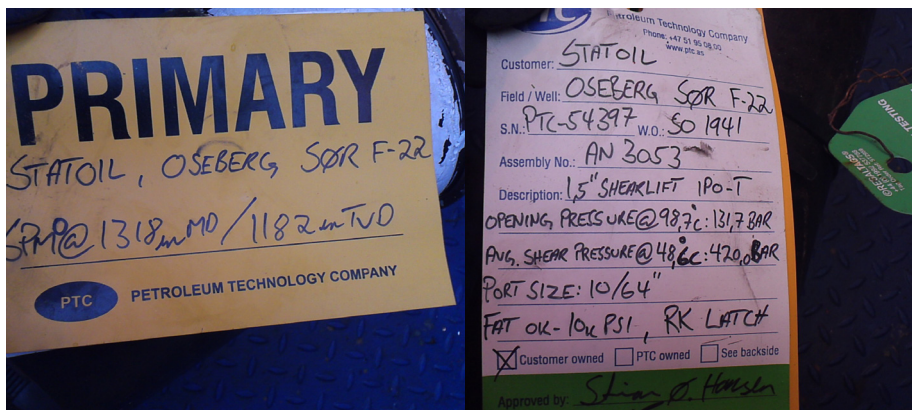 PRIMARY
STATOIL, OSEBERG SØR F-22
SPMP@1318mMD/1182mTVD
PTC PETROLEUM TECHNOLOGY COMPANY
Petroleum Technology Company
Phone: +47 51 95 08 00
www.ptc.as
Customer: STATOIL
Field / Well: OSEBERG SØR F-22
S.N.: PTC-54397 W.O.: SO 1941
Assembly No.: AN 3053
Description: 1,5" SHEARLIFT IPO-T
OPENING PRESSURE@98,7c: 131,7 BAR
AVG. SHEAR PRESSURE@48,6c: 420,0BAR
PORT SIZE: 10/64"
FAT OK-10K PSI, RK LATCH
Customer owned PTC owned See backside
Approved by: Stian Ø. Hansen
TESTING